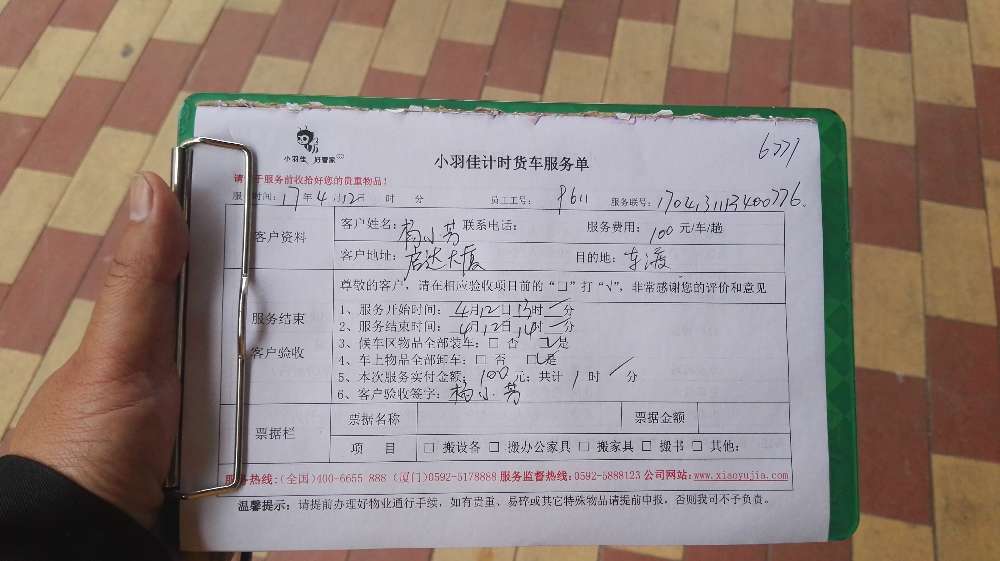 小羽佳 好管家
小羽佳计时货车服务单
6771
请于服务前收拾好您的贵重物品!
服务时间: 17年4月12日 时 分 员工工号: 服务联号:
客户资料
客户姓名: 杨小芳 联系电话: 服务费用: 100元/车/趟
客户地址: 君达大厦 目的地: 东渡
尊敬的客户, 请在相应验收项目前的“□”打“√”, 非常感谢您的评价和意见
服务结束
客户验收
1、服务开始时间: 4月12日13时 分
2、服务结束时间: 4月12日14时 分
3、候车区物品全部装车: □ 否 □是
4、车上物品全部卸车: □ 否 □是
5、本次服务实付金额: 100元; 共计 1 时 分
6、客户验收签字: 杨小芳
票据栏
票据名称 票据金额
项 目 □ 搬设备 □ 搬办公家具 □ 搬家具 □ 搬书 □ 其他:
服务热线:(全国)400-6655 888 (厦门)0592-5178888 服务监督热线:0592-5888123 公司网站:www.xiaoyujia.com
温馨提示: 请提前办理好物业通行手续, 如有贵重、易碎或其它特殊物品请提前申报, 否则我司不予负责。